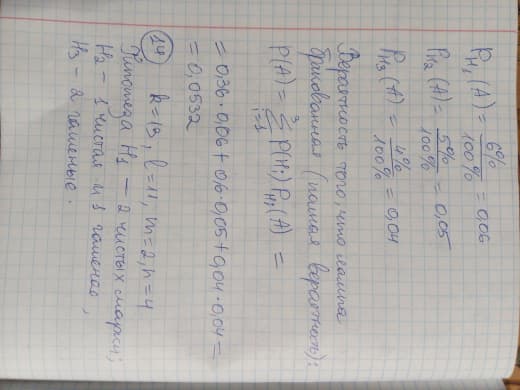 P_H₁(A) = 6%/100% = 0,06
P_H₂(A) = 5%/100% = 0,05
P_H₃(A) = 4%/100% = 0,04
Вероятность того, что лампа
бракованная (полная вероятность):
P(A) = ∑_{i=1}^{3} P(Hi) P_Hi(A) =
= 0,36·0,06 + 0,6·0,05 + 0,04·0,04 =
= 0,0532
14 k=13, l=11, m=2, n=4
Гипотеза H₁ — 2 чистых марки;
H₂ - 1 чистая и 1 гашеная,
H₃ - 2 гашеные.